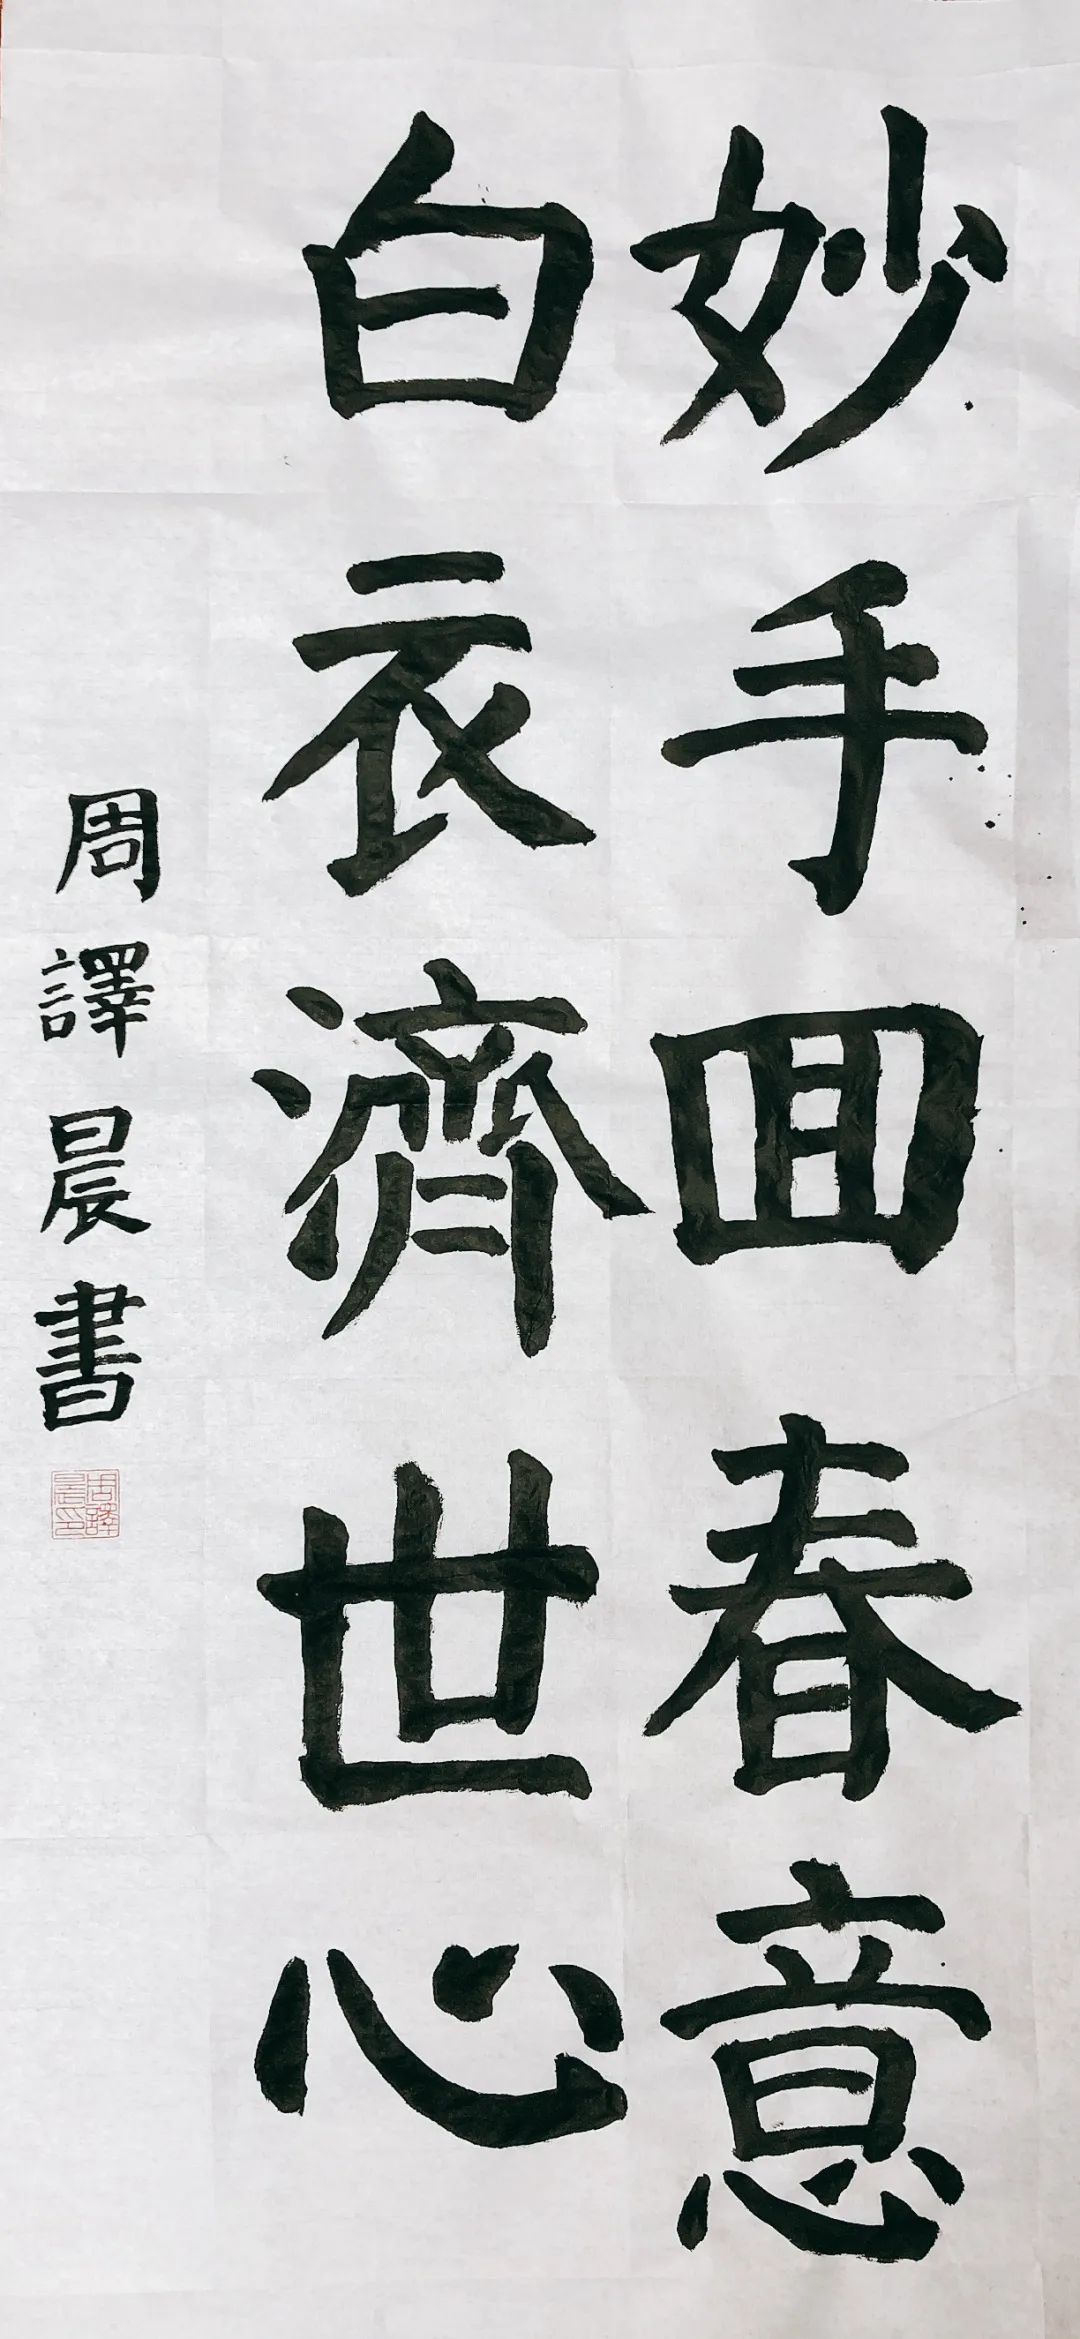 妙手回春意
白衣濟世心
周譯晨書
周譯晨印